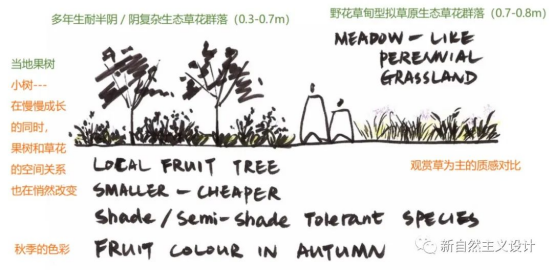 多年生耐半阴 / 阴复杂生态草花群落（0.3-0.7m）
野花草甸型拟草原生态草花群落（0.7-0.8m）
MEADOW - LIKE
PERENNIAL
GRASSLAND
当地果树
小树---
在慢慢成长
的同时，
果树和草花
的空间关系
也在悄然改变
LOCAL FRUIT TREE
SMALLER - CHEAPER
Shade / Semi-Shade Tolerant SPECIES
观赏草为主的质感对比
秋季的色彩
FRUIT COLOUR IN AUTUMN
新自然主义设计